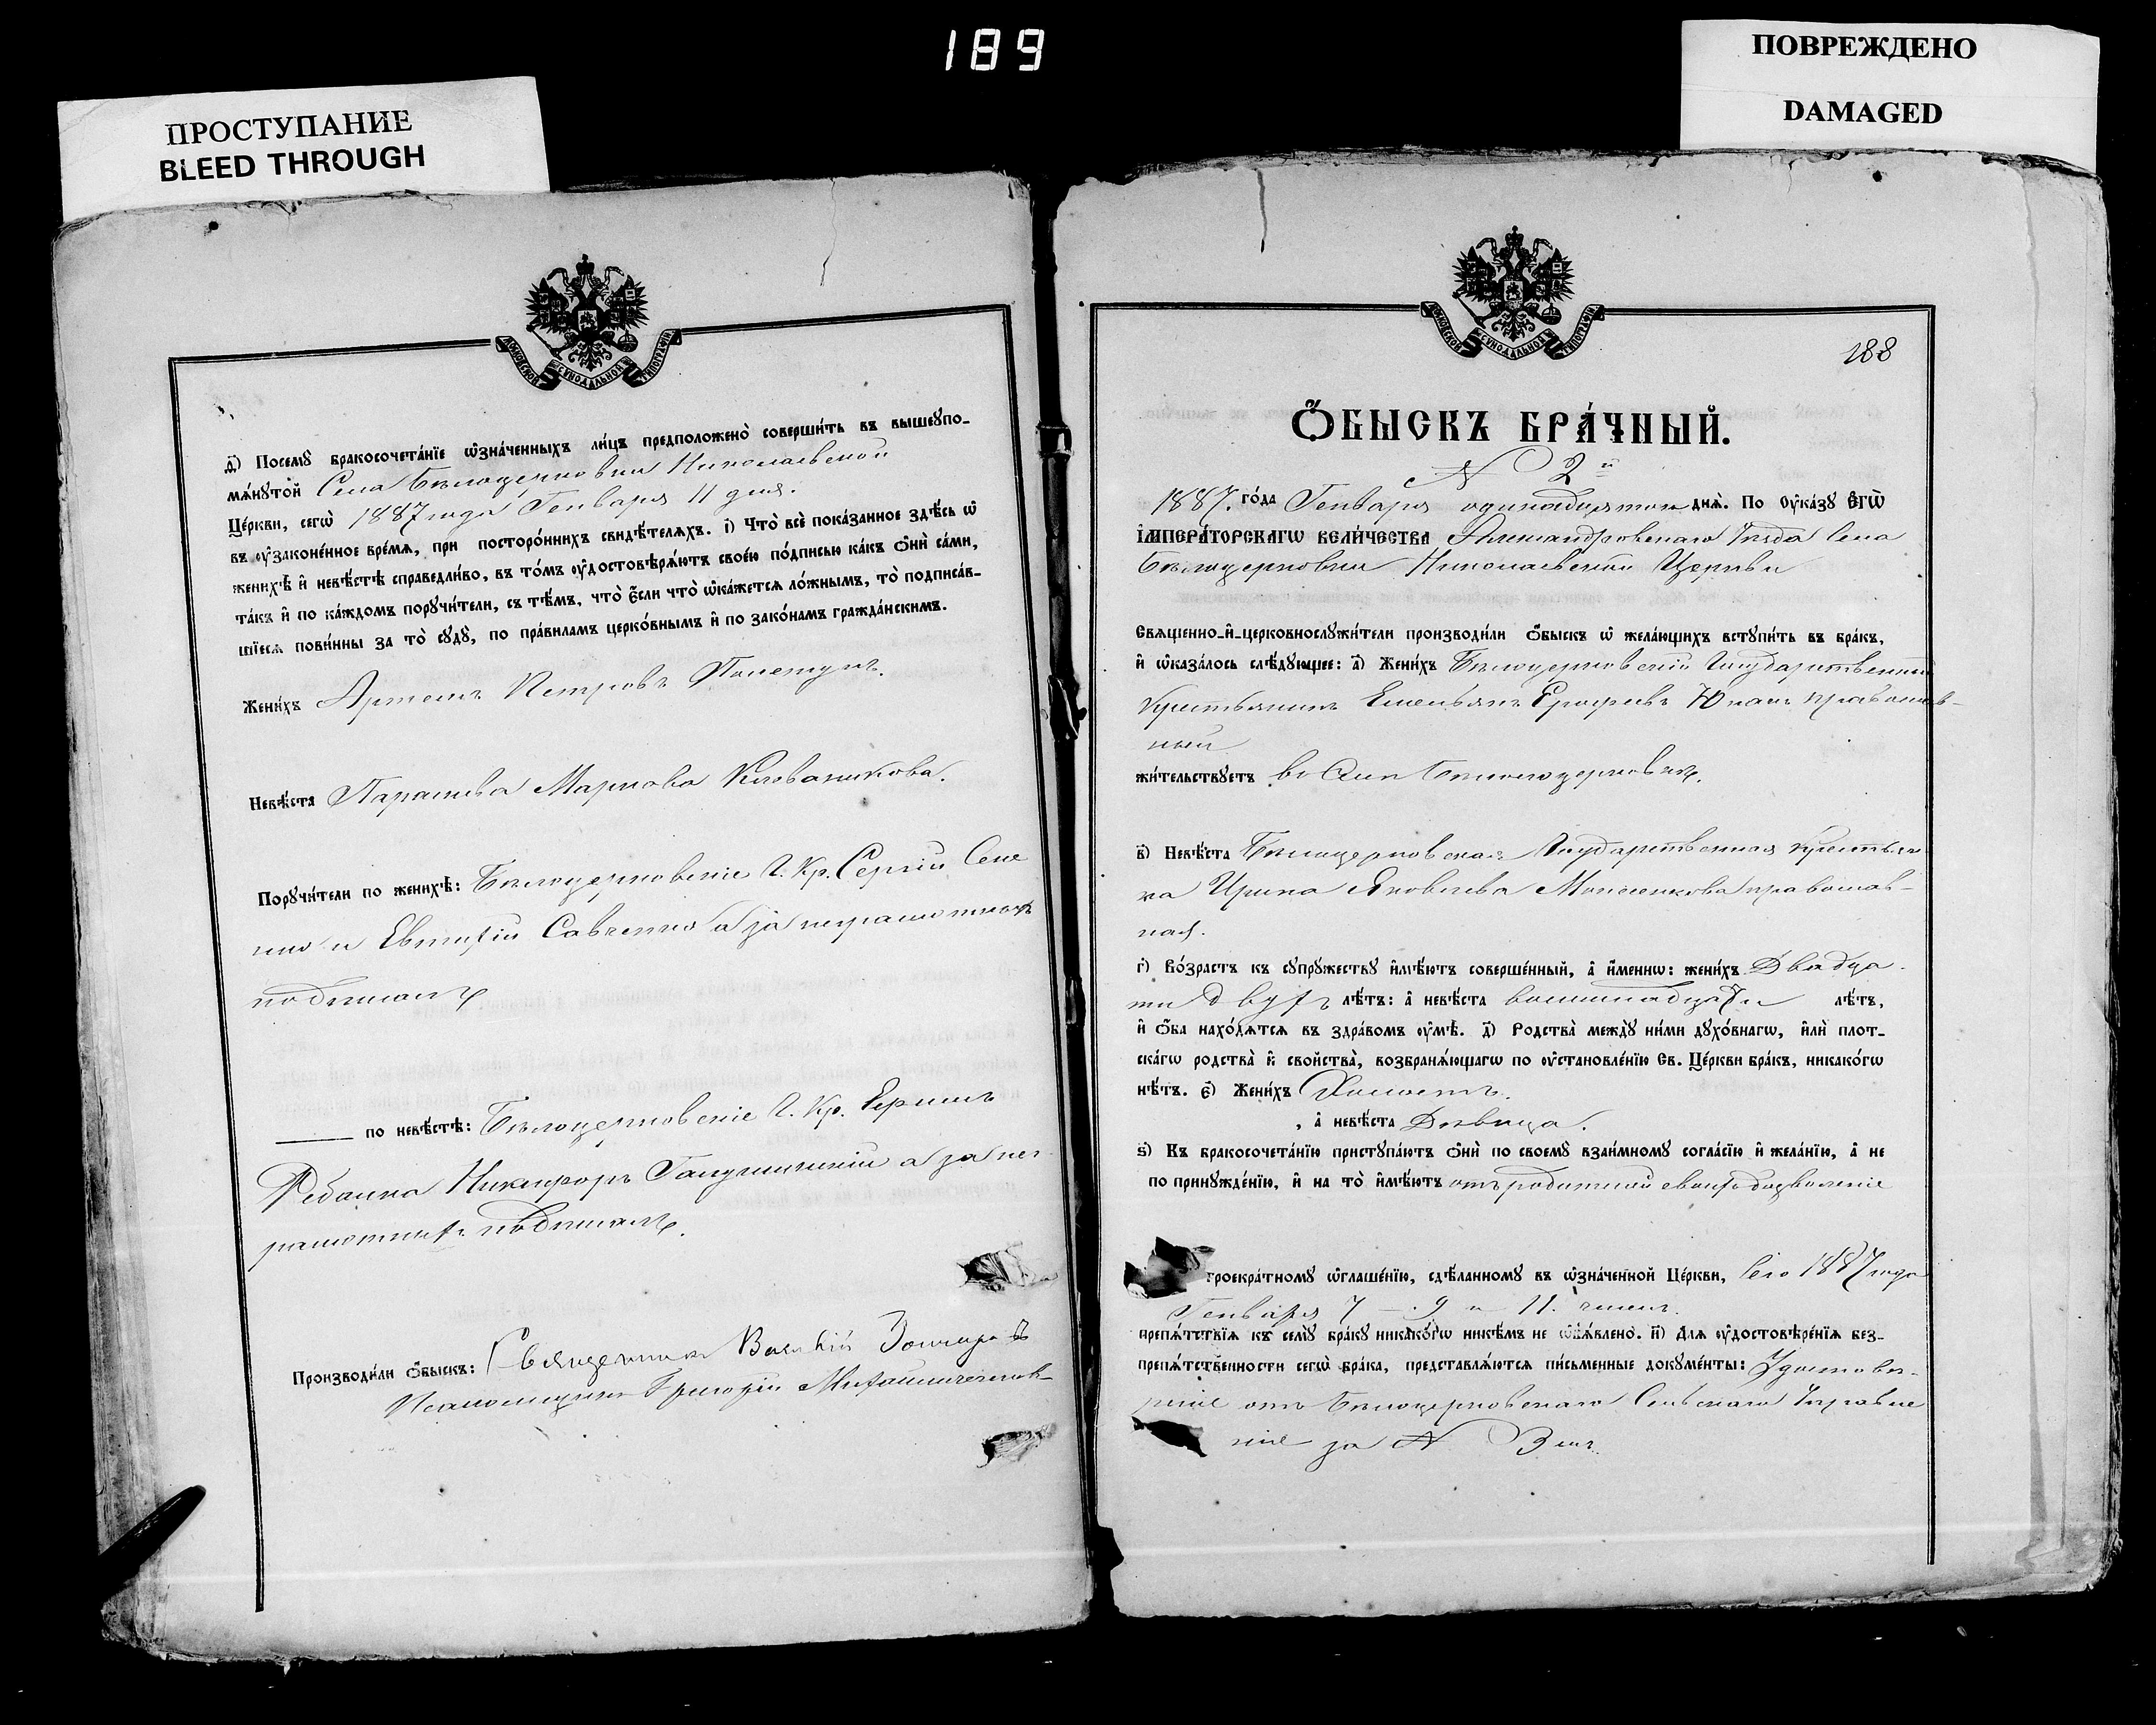 189
ПРОСТУПАНИЕ
BLEED THROUGH
ПОВРЕЖДЕНО
DAMAGED
МОСКОВСКОЙ СѴНОДАЛЬНОЙ ТИПОГРАФІИ
д҃і) Посемꙋ бракосочета́нїе ѡ҆зна́ченныхъ ли́цъ предположено̀ соверши́ть въ вышеꙋпо-
мѧ́нꙋтой Села Бѣлоцерковки Николаевской
Це́ркви, сегѡ̀ 1887 года Генваря 11 дня.
въ ᲂу҆законе́нное вре́мѧ, при посторо́ннихъ свидѣ́телѧхъ. і҃) Что̀ всѐ пока́занное здѣ́сь ѡ҆
женихѣ̀ и҆ невѣ́стѣ справедли́во, въ то́мъ ᲂу҆достовѣрѧ́ютъ свое́ю по́дписью ка́къ ѻ҆нѝ са́ми,
та́къ и҆ по ка́ждомъ порꙋчи́тели, съ тѣ́мъ, что̀ є҆́сли что̀ ѡ҆ка́жетсѧ ло́жнымъ, то̀ подписа́в-
шїесѧ пови́нны за то̀ сꙋдꙋ̀, по пра́виламъ церко́внымъ и҆ по зако́намъ гражда́нскимъ.
Жени́хъ Артемъ Петровъ
Невѣ́ста Параскева Маркова
Порꙋчи́тели по женихѣ̀: Бѣлоцерковскіе Г. Кр. Сергій Сене
нко и Евтихій Савченко а за неграмотныхъ
подписалъ
по невѣ́стѣ: Бѣлоцерковскіе Г. Кр.
Никифоръ а за нег
рамотныхъ подписалъ.
Производи́ли ѻ҆́быскъ: Священникъ Василій
Псаломщикъ Григорій
МОСКОВСКОЙ СѴНОДАЛЬНОЙ ТИПОГРАФІИ
188
Ѻ҆́БЫСКЪ БРА́ЧНЫЙ.
№ 2й
1887. го́да Генваря одинадцятого днѧ̀. По ᲂу҆ка́зꙋ Є҆гѡ̀
І҆МПЕРА́ТОРСКАГѠ ВЕЛИ́ЧЕСТВА Александровскаго Уезда Села
Бѣлоцерковки Николаевской Церкви
Свѧще́нно-и҆-церковнослꙋжи́тели производи́ли ѻ҆́быскъ ѡ҆ жела́ющихъ встꙋпи́ть въ бра́къ,
и҆ ѡ҆каза́лось слѣ́дꙋющее: а҃) Жени́хъ Бѣлоцерковскій Государственный
Крестьянинъ Емельянъ Ерофеевъ православ-
ный
жи́тельствꙋетъ въ Селѣ Бѣлоцерковкѣ.
в҃) Невѣ́ста Бѣлоцерковская Государственная крестьян-
ка Ирина Яковлева православ-
ная.
г҃) Во́зрастъ къ сꙋпрꙋ́жествꙋ и҆мѣ́ютъ соверше́нный, а҆ и҆́меннѡ: жени́хъ Двадца-
ти двухъ лѣ́тъ: а҆ невѣ́ста восимнадцати лѣ́тъ,
и҆ ѻ҆́ба нахо́дѧтсѧ въ здра́вомъ ᲂу҆мѣ̀. д҃) Родства̀ междꙋ̀ ни́ми дꙋхо́внагѡ, и҆лѝ плот-
ска́гѡ родства̀ и҆ свойства̀, возбранѧ́ющагѡ по ᲂу҆становле́нїю Св. Це́ркви бра́къ, никако́гѡ
нѣ́тъ. є҃) Жени́хъ Холостъ.
, а҆ невѣ́ста Дѣвица.
ѕ҃) Къ бракосочета́нїю пристꙋпа́ютъ ѻ҆нѝ по своемꙋ̀ взаи́мномꙋ согла́сїю и҆ жела́нїю, а҆ не
по принꙋжде́нїю, и҆ на то̀ и҆мѣ́ютъ отъ родителей своихъ дозволеніе
троекра́тномꙋ ѡ҆глаше́нїю, сдѣ́ланномꙋ въ ѡ҆зна́ченной Це́ркви, Сего 1887 года
Генваря 7 – 9 и 11. чиселъ.
препѧ́тствїѧ къ семꙋ̀ бра́кꙋ никако́гѡ никѣ́мъ не ѡ҆б̾ѧ́влено. и҃) Длѧ ᲂу҆достовѣре́нїѧ без-
препѧ́тственности сегѡ̀ бра́ка, представлѧ́ютсѧ пи́сьменные докꙋме́нты: Удостовѣ-
реніе отъ Бѣлоцерковскаго Сельскаго Управле
ніе за № 3мъ.